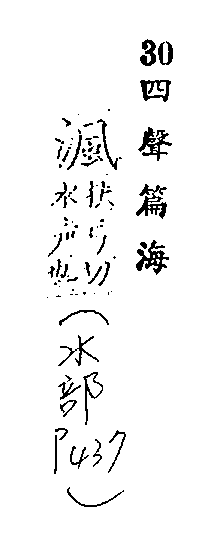 30四聲篇海
渢扶弓切
水声也
(水部
P437)